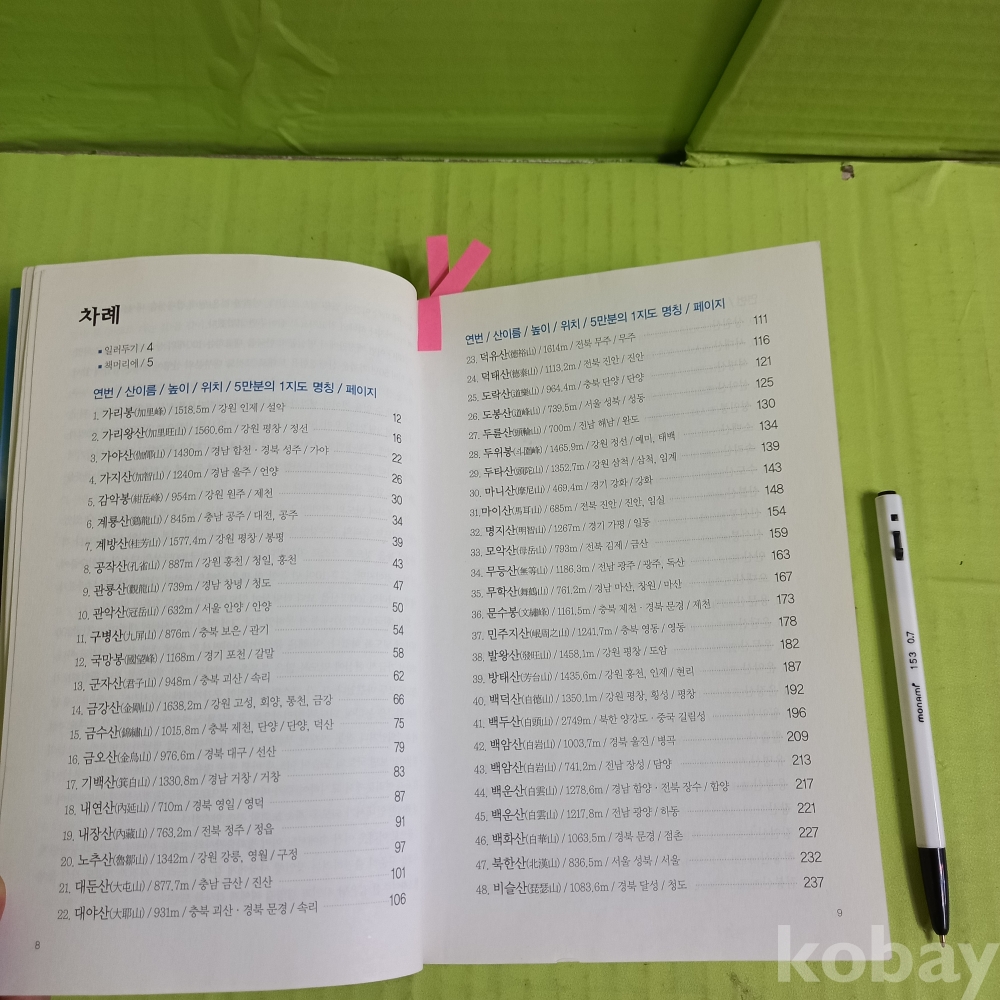 차례
▪ 일러두기 / 4
▪ 책머리에 / 5
연번 / 산이름 / 높이 / 위치 / 5만분의 1지도 명칭 / 페이지
1. 가리봉(加里峰) / 1518.5m / 강원 인제 / 설악 12
2. 가리왕산(加里旺山) / 1560.6m / 강원 평창 / 정선 16
3. 가야산(伽倻山) / 1430m / 경남 합천 · 경북 성주 / 가야 22
4. 가지산(加智山) / 1240m / 경남 울주 / 언양 26
5. 감악봉(紺岳峰) / 954m / 강원 원주 / 제천 30
6. 계룡산(鷄龍山) / 845m / 충남 공주 / 대전, 공주 34
7. 계방산(桂芳山) / 1577.4m / 강원 평창 / 봉평 39
8. 공작산(孔雀山) / 887m / 강원 홍천 / 청일, 홍천 43
9. 관룡산(觀龍山) / 739m / 경남 창녕 / 청도 47
10. 관악산(冠岳山) / 632m / 서울 안양 / 안양 50
11. 구병산(九屛山) / 876m / 충북 보은 / 관기 54
12. 국망봉(國望峰) / 1168m / 경기 포천 / 갈말 58
13. 군자산(君子山) / 948m / 충북 괴산 / 속리 62
14. 금강산(金剛山) / 1638.2m / 강원 고성, 회양, 통천, 금강 66
15. 금수산(錦繡山) / 1015.8m / 충북 제천, 단양 / 단양, 덕산 75
16. 금오산(金烏山) / 976.6m / 경북 대구 / 선산 79
17. 기백산(箕白山) / 1330.8m / 경남 거창 / 거창 83
18. 내연산(內延山) / 710m / 경북 영일 / 영덕 87
19. 내장산(內藏山) / 763.2m / 전북 정주 / 정읍 91
20. 노추산(魯鄒山) / 1342m / 강원 강릉, 영월 / 구정 97
21. 대둔산(大屯山) / 877.7m / 충남 금산 / 진산 101
22. 대야산(大耶山) / 931m / 충북 괴산 · 경북 문경 / 속리 106
8
연번 / 산이름 / 높이 / 위치 / 5만분의 1지도 명칭 / 페이지
23. 덕유산(德裕山) / 1614m / 전북 무주 / 무주 111
24. 덕태산(德泰山) / 1113.2m / 전북 진안 / 진안 116
25. 도락산(道樂山) / 964.4m / 충북 단양 / 단양 121
26. 도봉산(道峰山) / 739.5m / 서울 성북 / 성동 125
27. 두륜산(頭輪山) / 700m / 전남 해남 / 완도 130
28. 두위봉(斗圍峰) / 1465.9m / 강원 정선 / 예미, 태백 134
29. 두타산(頭陀山) / 1352.7m / 강원 삼척 / 삼척, 임계 139
30. 마니산(摩尼山) / 469.4m / 경기 강화 / 강화 143
31. 마이산(馬耳山) / 685m / 전북 진안 / 진안, 임실 148
32. 명지산(明智山) / 1267m / 경기 가평 / 일동 154
33. 모악산(母岳山) / 793m / 전북 김제 / 금산 159
34. 무등산(無等山) / 1186.3m / 전남 광주 / 광주, 독산 163
35. 무학산(舞鶴山) / 761.2m / 경남 마산, 창원 / 마산 167
36. 문수봉(文繡峰) / 1161.5m / 충북 제천 · 경북 문경 / 제천 173
37. 민주지산(岷周之山) / 1241.7m / 충북 영동 / 영동 178
38. 발왕산(發旺山) / 1458.1m / 강원 평창 / 도암 182
39. 방태산(芳台山) / 1435.6m / 강원 홍천, 인제 / 현리 187
40. 백덕산(白德山) / 1350.1m / 강원 평창, 횡성 / 평창 192
41. 백두산(白頭山) / 2749m / 북한 양강도 · 중국 길림성 196
42. 백암산(白岩山) / 1003.7m / 경북 울진 / 병곡 209
43. 백암산(白岩山) / 741.2m / 전남 장성 / 담양 213
44. 백운산(白雲山) / 1278.6m / 경남 함양 · 전북 장수 / 함양 217
45. 백운산(白雲山) / 1217.8m / 전남 광양 / 하동 221
46. 백화산(白華山) / 1063.5m / 경북 문경 / 점촌 227
47. 북한산(北漢山) / 836.5m / 서울 성북 / 서울 232
48. 비슬산(琵瑟山) / 1083.6m / 경북 달성 / 청도 237
9
monami 153 0.7
kobay